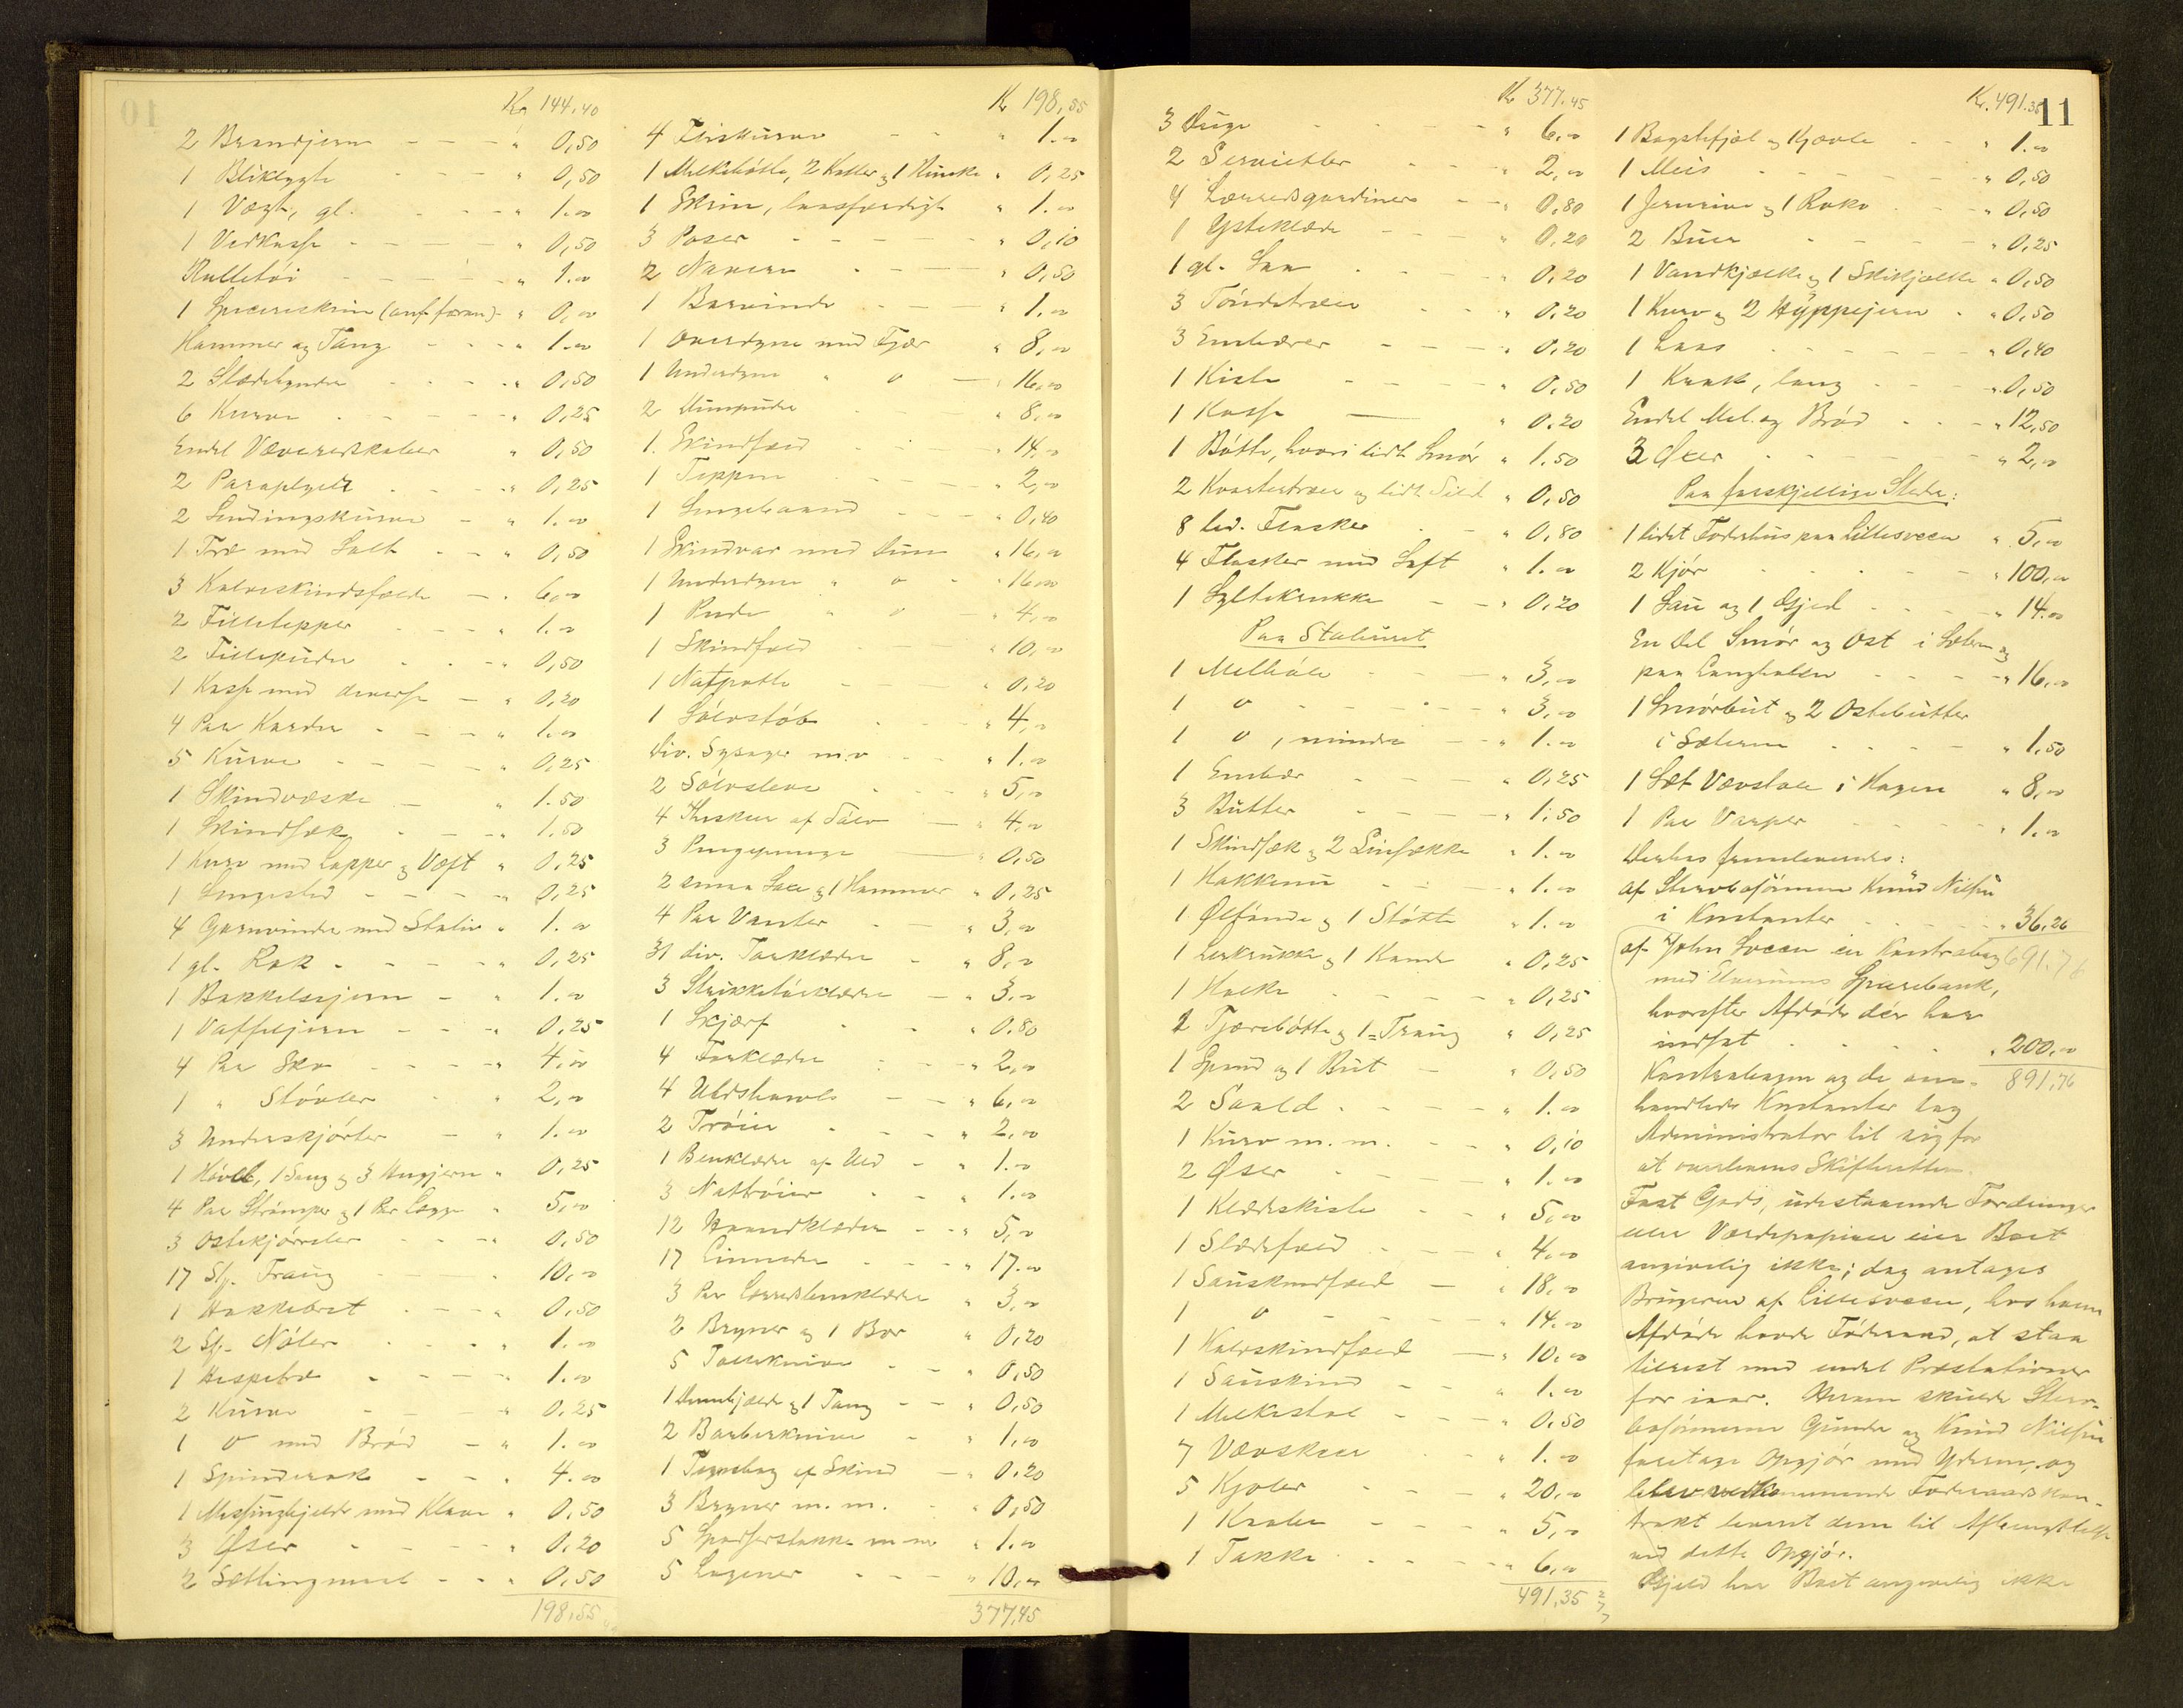 Kr 144,40
2 Brandjern - - - " 0,50
1 Bliklygte - - - " 0,50
1 Vægt, gl. - - - " 1.00
1 Vedkasse - - - " 0,50
Rulletøi - - - " 1.00
1 Spicereskrin (anf. foran) - " 0,00
Hammer og Tang - - - " 1.00
2 Slædebynder - - - " 0,50
6 Kurve - - - " 0,25
Endel Væveredskaber " 0,50
2 Paraplyer - - - " 0,25
2 Sendingskurve - " 1.00
1 Træ med Salt - - " 0,50
3 Kalveskindsfelde - " 6,00
2 Filletepper - - - " 1.00
2 Filleputer - - - " 0,50
1 Kasse med diverse - " 0,20
4 Par Karder - - - " 1.00
5 Kurve - - - " 0,25
1 Skindvæske - " 1.50
1 Skindsæk - - - " 1.50
1 Kurv med Lapper og Væft " 0,25
1 Sengested - - - " 0,25
4 Garnvinder med Stativ " 1.00
1 gl. Rok - - - " 0,25
1 Bakkelsejern - " 1.00
1 Vaffeljern - - - " 0,25
4 Par Sko - - - " 4,00
1 " Støvler - " 2,00
3 Underskjørter - " 1.00
1 Høvel, 1 Saug og 3 Hugjern " 0,25
4 Par Strømper og 1 Par Lægge " 5,00
3 Ostekjørreler - - - " 0,50
17 Sp. Traug - - - 10,00
1 Hakkebret - - - " 0,50
2 Sp. Nøler - - - " 1.00
1 Hespetræ - - - " 1.00
2 Kurve - - - " 0,25
1 o med Brød - " 1.00
1 Spinderok - - - " 4.00
1 Messingbjelde med Klave " 0,50
3 Øser - - - " 0,20
2 Sættingmeel - - - " 0,50
198,55
Kr 198,55
4 Fiskurve - - " 1.00
1 Melkebøtte, 2 Koller og 1 Hinke " 0,25
1 Skrin, laasfærdigt " 1.00
3 Poser - - - " 0,10
2 Navere - - - " 0,50
1 Barvinde - - - " 1.00
1 Overdyne med Fjær " 8,00
1 Underdyne " o - " 16,00
2 Dunputer " 8,00
1. Skindfeld - - - " 14,00
1 Teppe - - - " 2,00
1 Sengebaand - - - " 0,40
1 Skindvar med Dun " 16,00
1 Underdyne " o - " 16,00
1 Pude " o " 4,00
1 Skindfeld - - - " 10,00
1 Natpotte - - - " 0,20
1 Sølvstøb - - - " 4,00
div. Sysager m.v - " 1.00
2 Sølvsleve - - - " 5,00
4 Theskeer af Sølv - " 4,00
3 Pengepunge - " 0,50
2 smaa Laase og 1 Hammer " 0,25
4 Par Vanter - " 3,00
31 div. Tørklæder - " 8,00
3 Strikketøiklæder - " 3.00
1 Skjærf - - " 0.80
4 Forklæder - - - " 2,00
4 Uldshawls - - " 6,00
2 Trøier - - - " 2,00
1 Benklæder af Uld - " 1.00
3 Nattrøier - - " 1.00
12 Haandklæder - - " 5,00
17 Linneder - - - " 17.00
3 Par Lærredsbenklæder " 3,00
2 Bryner og 1 Bor " 0,20
5 Tolleknive - - " 0,50
1 Dumbjælde og 1 Tang - - " 0,50
2 Barberknive - " 1,00
1 Tegnebog af Skind - " 0.20
3 Bryner m.m. - " 0,50
5 Spadserstokke m.m " 1.00
5 Lagener - - - " 10,00
377,45
Kr 377,45
3 Duge - - - " 6,00
2 Servietter - - - " 2,00
4 Lærredsgardiner - - " 0,80
1 Ysteklæde - - - " 0,20
1 gl. Laa - - - " 0,20
3 Tøndetræer - - " 0,20
3 Embærer - - - " 0,20
1 Kiste - - - " 0,50
1 Kasse - " 0.20
1 Bøtte, hvori lidt Smør " 1.50
2 Kvartertræer og lidt Sild " 0,50
8 led. Flasker - - " 0,80
4 Flasker med Saft " 1.00
1 Syltekrukke - - " 0,20
Paa Stabu<ret
1 Melbøle - - - " 3,00
1 o - - - " 3,00
1 o, mindre - " 1.00
1 Embær - - - " 0,25
3 Butter - - - " 1.50
1 Skindsæk og 2 Linsække " 1.00
1 Hakkemu - - - " 1.00
1 Øltønde og 1 Støtte " 1.00
1 Lerkrukke og 1 Kande " 0,25
1 Holke - - - " 0,25
1 Tjærebøtte og 1 Traug " 0,25
1 Spand og 1 But - " 0,50
2 Saald - - - " 1.00
1 Kurv m.m. - - " 0,10
2 Øser - - - " 1.00
1 Klædeskiste - - " 5,00
1 Slædefeld - - - " 4,00
1 Saueskindfeld - " 18,00
1 o - - - " 14.00
1 Kalvskindfeld - " 10,00
1 Saueskind - - " 1.00
1 Melkestol - - - " 0.50
7 Vævskeer " 1.00
5 Kjoler - - - " 20,00
1 Kaabe - - - " 5,00
1 Takke - - - " 6,00
491,35
Kr. 491.35
11
1 Bagstefjæl og Kjævle - - " 1.00
1 Meis - - - " 0,50
1 Jernrive og 1 Rake - - - " 0,50
2 Buer - - - " 0,25
1 Vandkjælke og 1 Skikjælke " 0,50
1 Kurv og 2 Hyppejern - " 0,50
1 Laas - - - " 0,40
1 Krak, lang - - - " 0,50
Endel Mel og Brød - - - " 12,50
3 Øxer - - - " 2,00
Paa forskjellige Steder:
1 lidet Foderhus paa Lillesveen " 5,00
2 Kjør - - - " 100,00
1 Sau og 1 Gjed - - - " 14.00
En Del Smør og Ost i Sæteren og
paa Langhalsen - - - " 16,00
1 Smørbut og 2 Ostebutter
i Sæteren - - - " 1.50
1 Sæt Vævstole i Hagen " 8,00
1 Par Varper - - - " 1.00
Derhos fremlevendes:
af Stervbosønnen Knud Nilsen
i Kontanter - - - " 36,26
691.76
af John Sveen en Kontrabog
med Elverums Sparebank,
hvorefter Afdøde dér har
indsat - - - " 200,00
891,76
Kontrabogen og de om-
handlede Kontanter tog
Administrator til sig for
at overleveres Skifteretten.
Fast Gods, udestaaende Fordringer
eller Værdipapirer eier Boet
angivelig ikke; dog antages
Brugeren af Lillesveen, hos hvem
Afdøde havde Føderaad, at staa
tilrest med endel Præstationer
for iaar. Herom skulde Sterv-
bosønnerne Gunder og Knud Nilsen
foretage Opgjør med Yderen, og
blev vedkommende Føderaadskon-
trakt leveret dem til Afbenyttelse
ved dette Opgjør.
Gjeld har Boet angivelig ikke